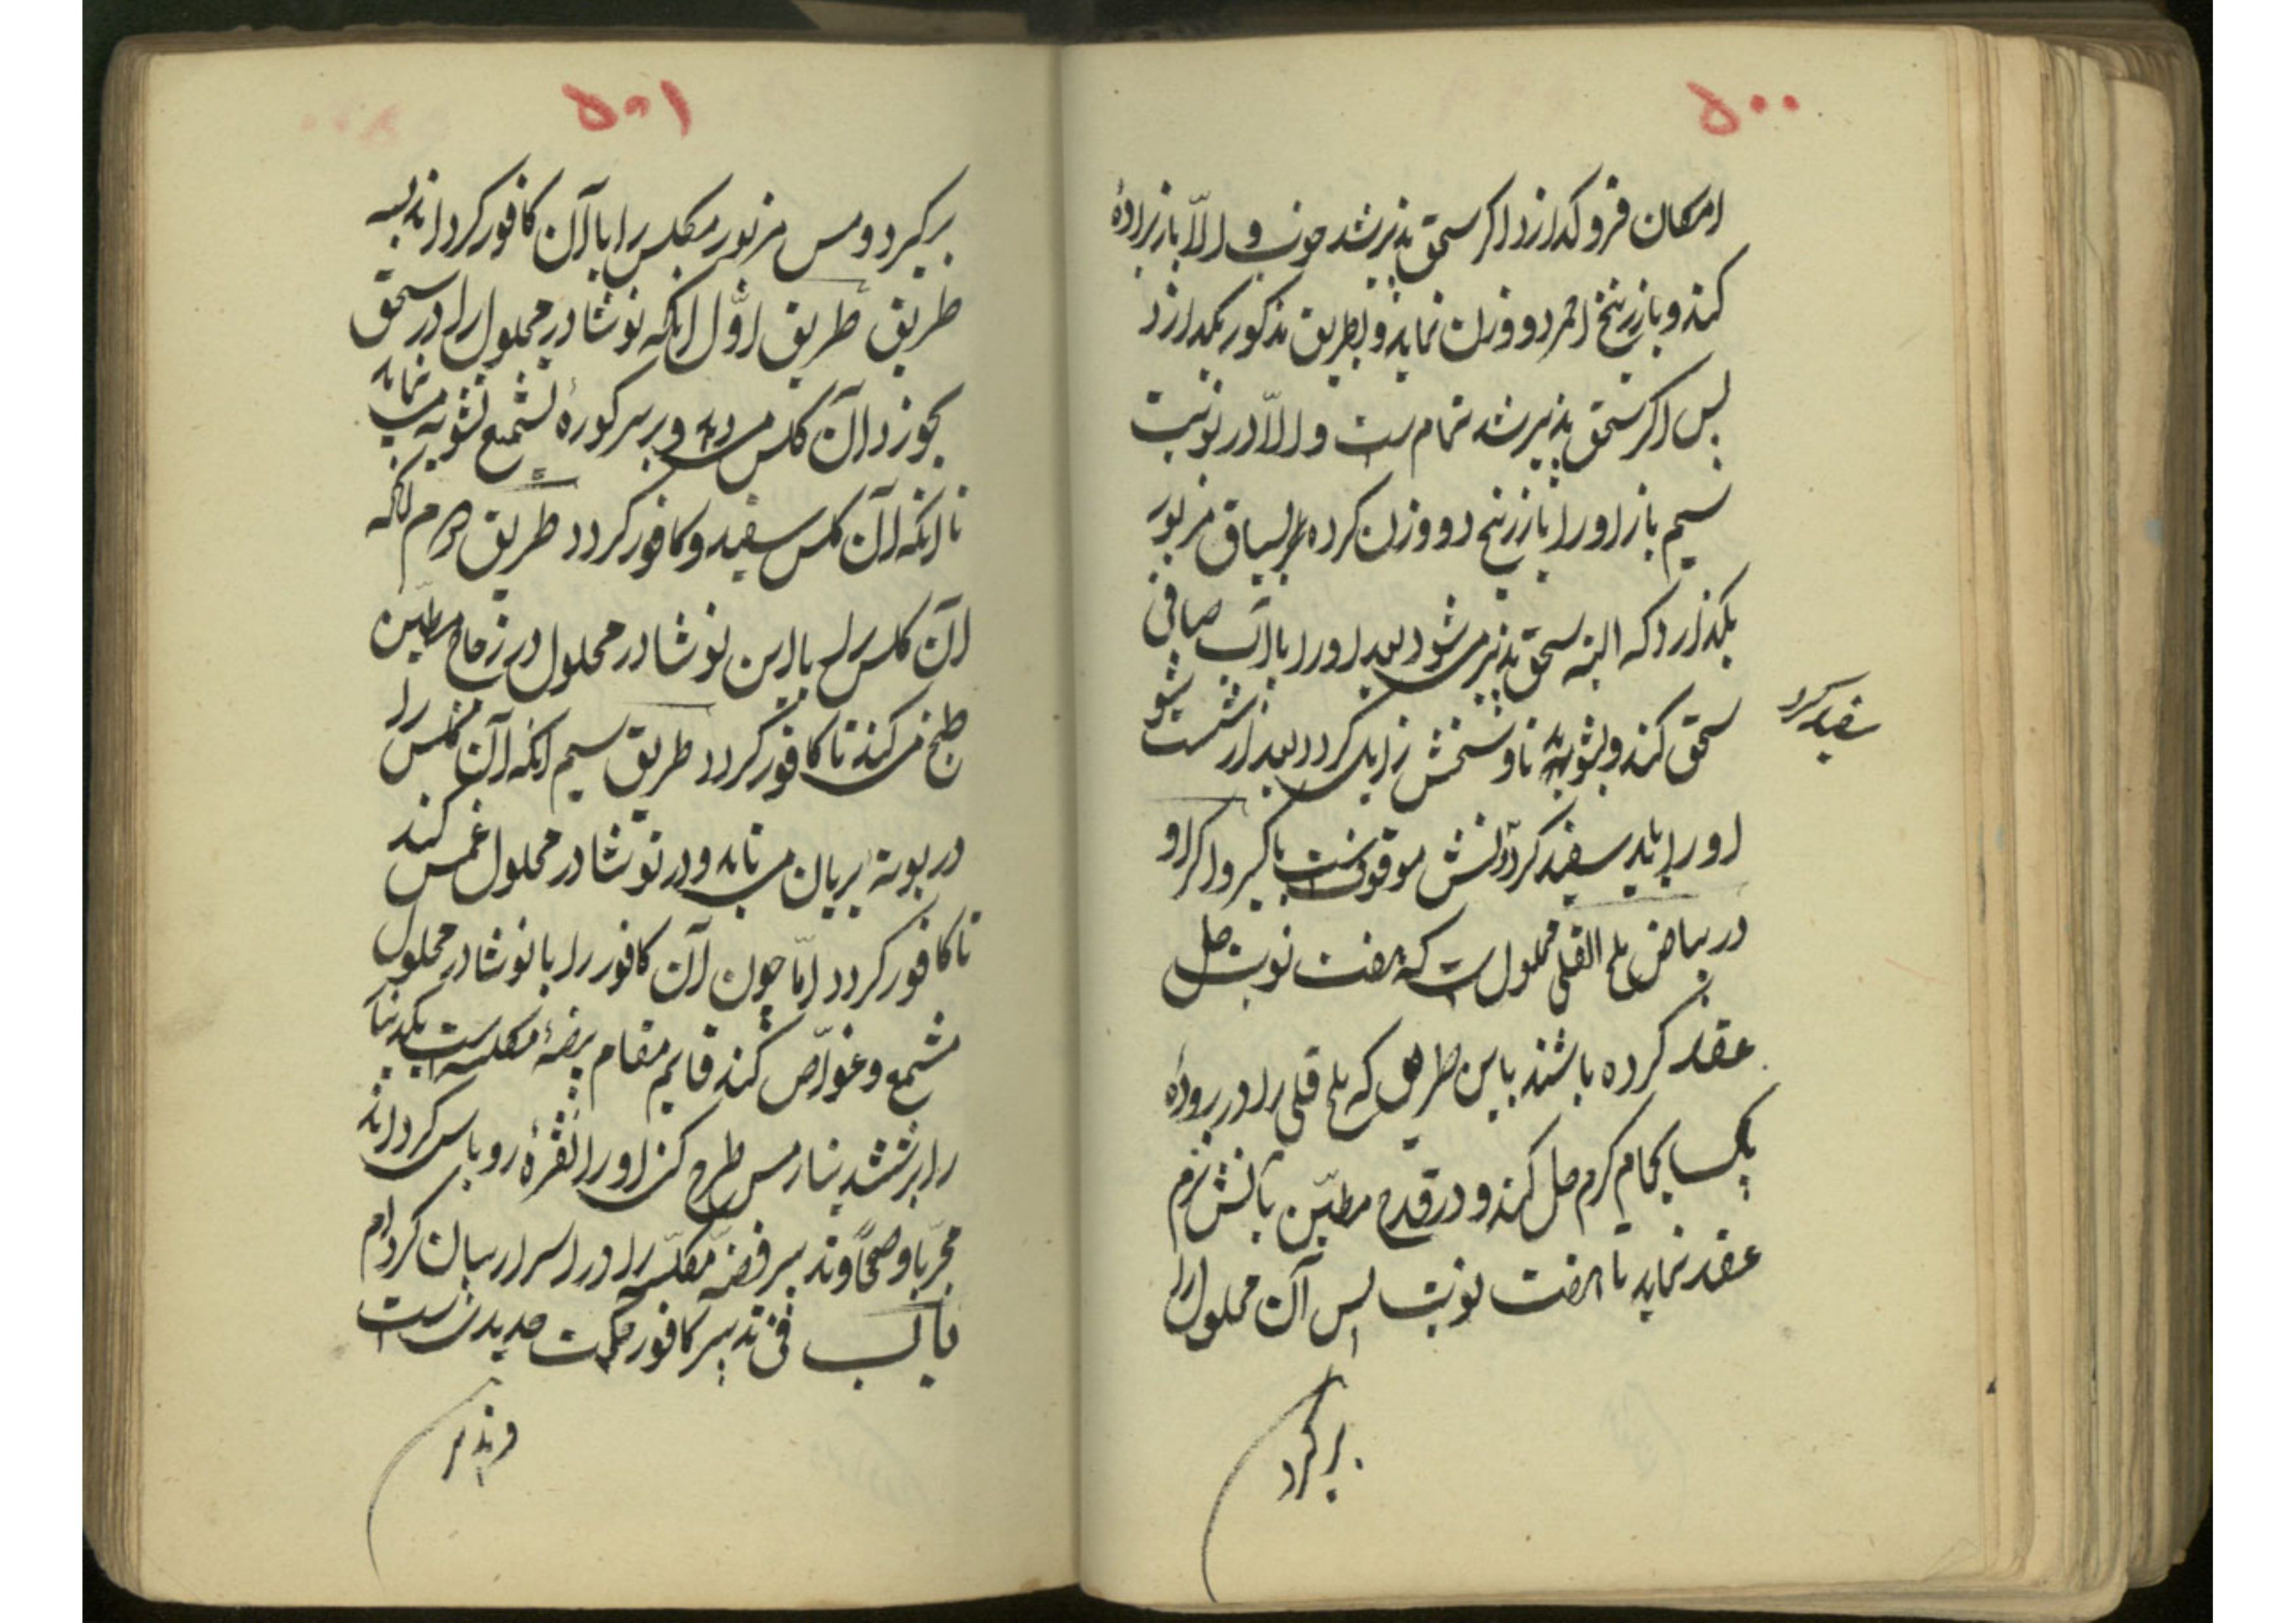 ۵۰۰
امکان فرو کدازد اکر سحق پذیر شد خوب و الّا باز برادهٔ
کند و با زرنیخ احمر دو وزن نماید و بطریق مذکور بکدازد
پس اکر سحق پذیر شد تمام است و الّا در نوبت
سیم باز او را با زرنیخ دو وزن کرده بر سیاق مزبور
بکذارد که البته سحق پذیر میشود بعد او را با آب صافی
سحق کند و بشوید تا وسخش زایل کردد بعد از شست شو
سفید کرد
او را باید سفید کرد
در بیاض ملح القلی محلول است که هفت نوبت حل
عقد کرده باشند باین طریق که ملح قلی را در برودهٔ
یکسا بحام کرم حل کند و در قدح مطیّن بآتش نرم
عقد نماید تا هفت نوبت پس آن محلول را
بر کیرد
۵۰۱
بر کیرد و مس مزبور مکلس را با آن کافور کرداند بسه
طریق طریق اوّل انکه نوشادر محلول را در سحق
بخورد آن کلس میدهد و بر سر کورهٔ تشمیع تشویه مینماید
تا انکه آن کلس سفید و کافور کردد طریق دوم انکه
آن کلس را با این نوشادر محلول در زجاج مطیّن
طبخ می کند تا کافور کردد طریق سیم انکه آن کلس را
در بوتهٔ بریان می تابد و در نوشادر محلول غمس کند
تا کافور کردد امّا چون آن کافور را با نوشادر محلول
مشمع و غوّاص کند قایم مقام فضهٔ مکلسه است یکدینار
را بر شش دینار مس طرح کن او را نقرهٔ روباس کرداند
مجرّبا و صحیحاً و تدبیر فضهٔ مکلّسه را در اسرار بیان کرده‌ام
باب فی تدبیر کافور حکمت حدید است
و تدبیر